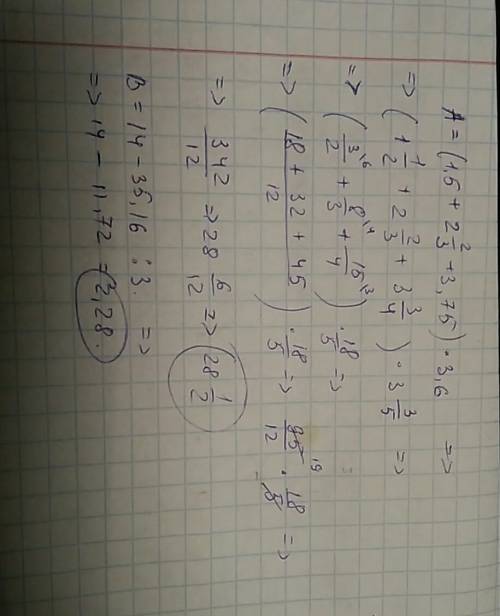 A = (1,5 + 2 2/3 + 3,75) · 3,6 =>
=> (1 1/2 + 2 2/3 + 3 3/4) · 3 3/5 =>
=> (3/2 ^6 + 8/3 ^4 + 15/4 ^3) · 18/5 =>
=> (18 + 32 + 45 / 12) · 18/5 => 95/12 ^19 · 18/5 =>
=> 342/12 => 28 6/12 => 28 1/2
B = 14 - 35,16 : 3. =>
=> 14 - 11,72 = 2,28.